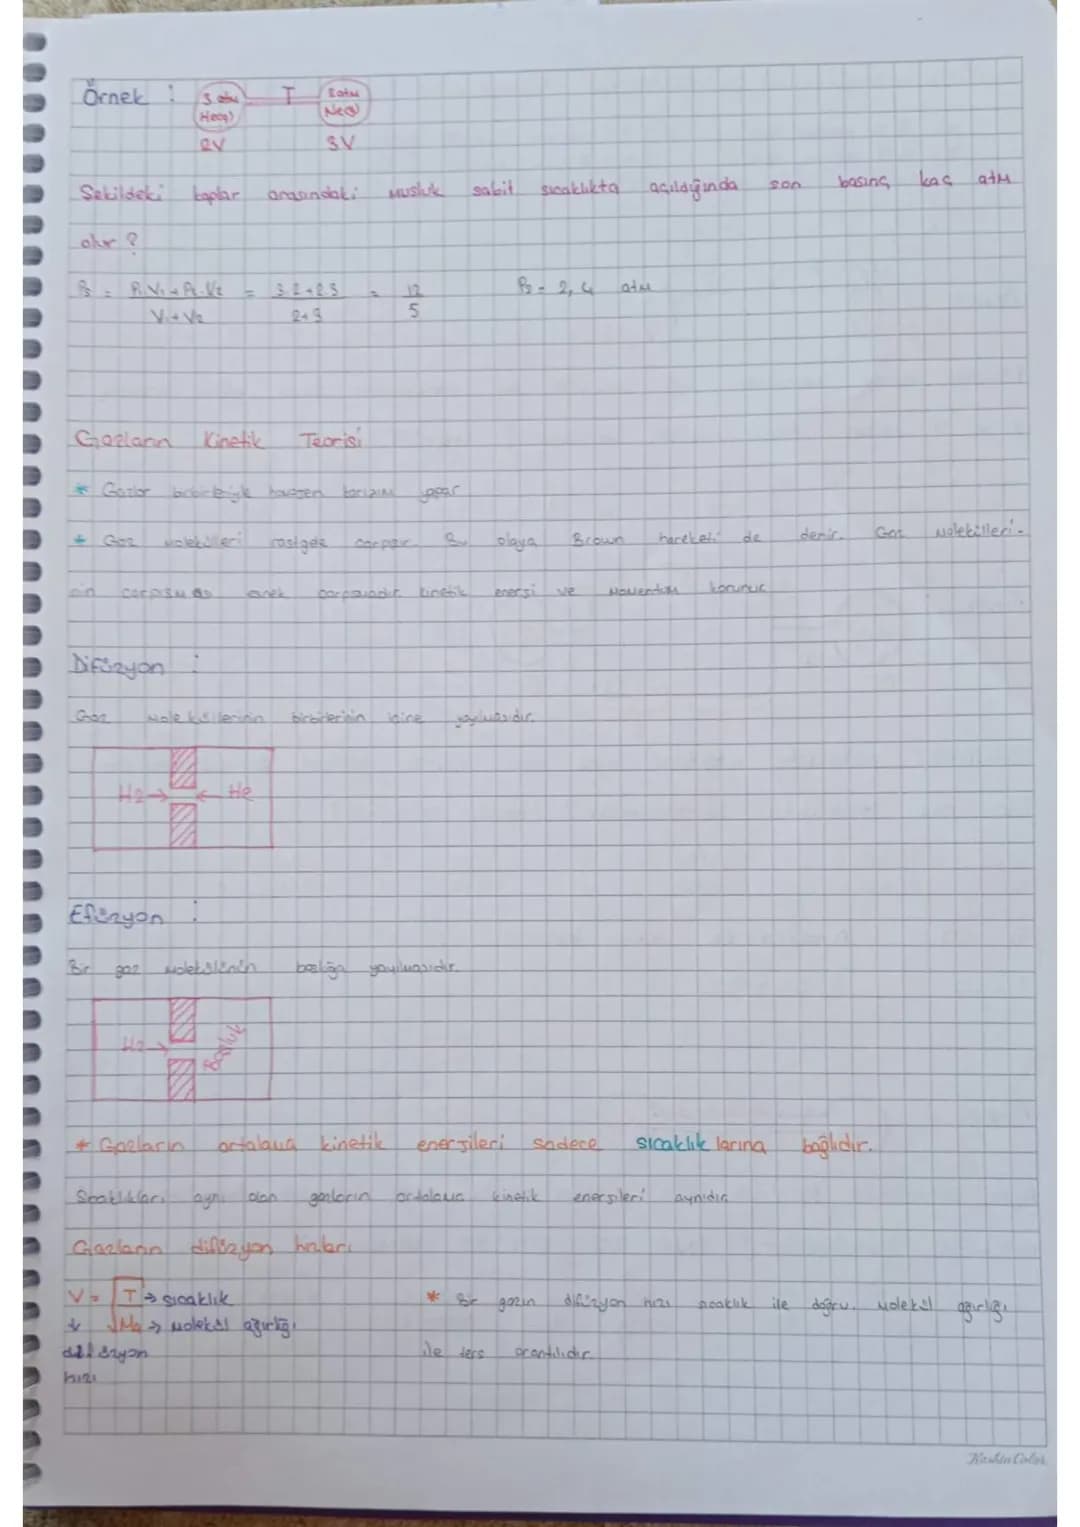 Örnek : 3 atm T 2 atm
He(g) Ne(g)
2V 3V
Şekildeki kaplar arasındaki musluk sabit sıcaklıkta açıldığında son basınç kaç atm
olur ?
P3 = P1.V1+P2.V2 = 3.2+2.3 = 12 P3 = 2,4 atm
V1+V2 2+3 5
Gazların Kinetik Teorisi
* Gazlar birbirleriyle homojen karışım yapar
* Gaz molekülleri rastgele çarpar. Bu olaya Brown hareketi de denir. Gaz molekülleri-
nin çarpışması esnek çarpışmadır. Kinetik enerji ve momentum korunur.
Difüzyon :
Gaz moleküllerinin birbirlerinin içine yayılmasıdır.
H2 → ← He
Efüzyon :
Bir gaz molekülünün boşluğa yayılmasıdır.
H2 → Boşluk
* Gazların ortalama kinetik enerjileri sadece sıcaklıklarına bağlıdır.
Sıcaklıkları aynı olan gazların ortalama kinetik enerjileri aynıdır.
Gazların difüzyon hızları
V = √T → sıcaklık * Bir gazın difüzyon hızı sıcaklık ile doğru, molekül ağırlığı
↓ √Ma → molekül ağırlığı
difüzyon ile ters orantılıdır.
hızı
Keskin Color